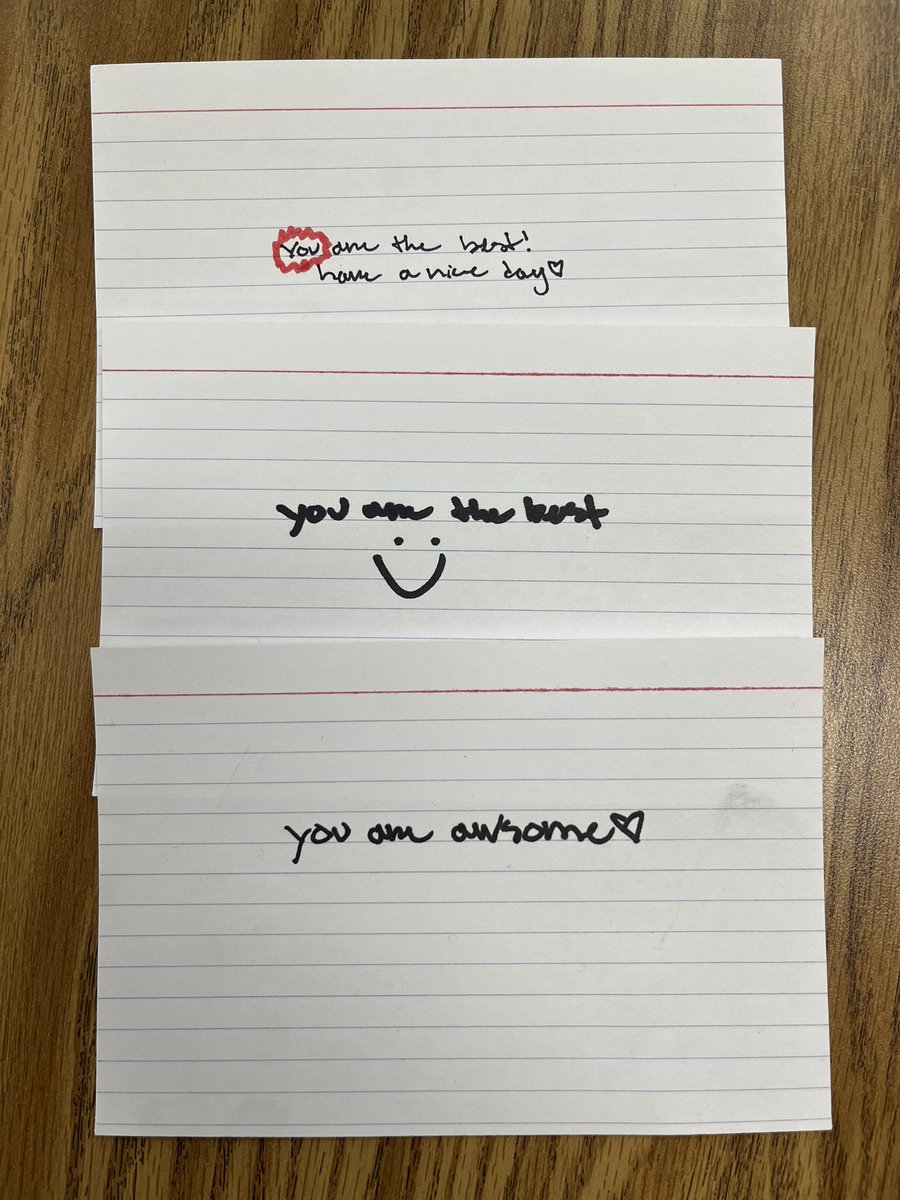 you are the best!
have a nice day♡
you are the best
you are awsome♡